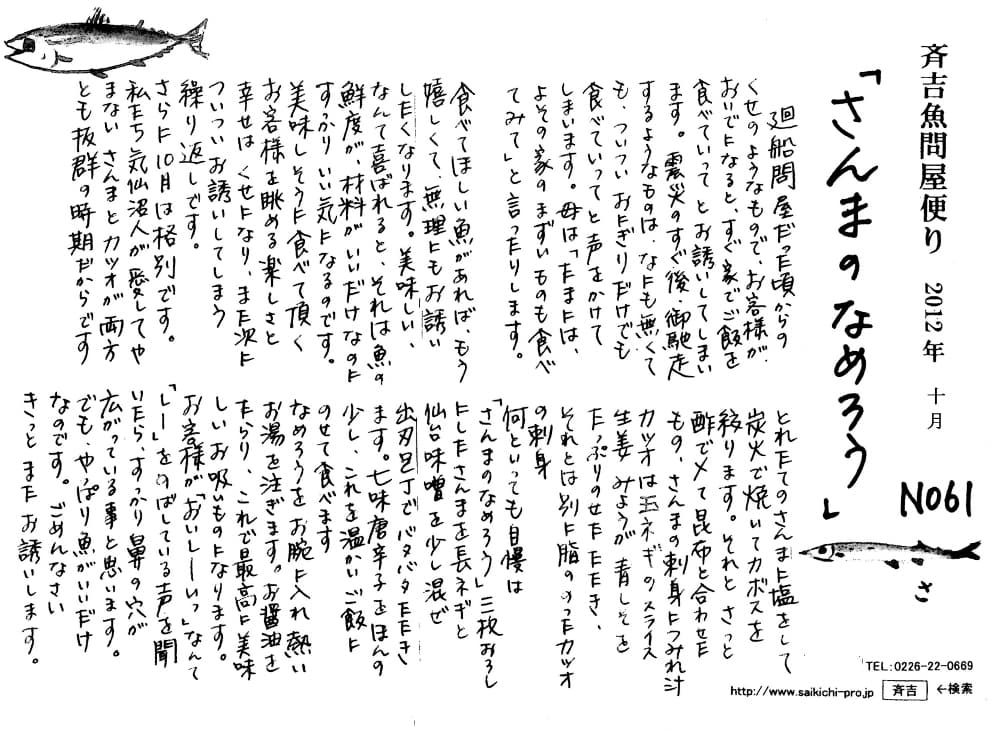 斉吉魚問屋便り　2012年　十月
「さんまのなめろう」
NO61
さ
廻船問屋だった頃からの
くせのようなもので、お客様が、
おいでになると、すぐ家でご飯を
食べていって とお誘いしてしまい
ます。震災のすぐ後、御馳走
するようなものは、なにも無くて
も、ついつい おにぎりだけでも
食べていってと声をかけて
しまいます。母は「たまには、
よその家のまずいものも食べ
てみて」と言ったりします。
食べてほしい魚があれば、もう
嬉しくて、無理にもお誘い
したくなります。美味しい、
なんて喜ばれると、それは魚の
鮮度が、材料がいいだけなのに
すっかり いい気になるのです。
美味しそうに食べて頂く
お客様を眺める楽しさと
幸せは くせになり、また次に
ついついお誘いしてしまう
繰り返しです。
さらに10月は格別です。
私たち気仙沼人が愛してや
まない さんまとカツオが両方
とも抜群の時期だからです
とれたてのさんまに塩をして
炭火で焼いてカボスを
絞ります。それと さっと
酢で〆て昆布と合わせた
もの、さんまの刺身につみれ汁
カツオは玉ネギのスライス
生姜 みょうが 青しそを
たっぷりのせたたたき、
それとは別に脂ののったカツオ
の刺身
何といっても自慢は
「さんまのなめろう」三枚おろし
にしたさんまを長ネギと
仙台味噌を少し混ぜ
出刃包丁でバタバタたたき
ます。七味唐辛子をほんの
少し、これを温かいご飯に
のせて食べます
なめろうをお腕に入れ熱い
お湯を注ぎます。お醤油を
たらり、これで最高に美味
しいお吸いものになります。
お客様が「おいしーいっ」なんて
「しー」をのばしている声を聞
いたら、すっかり鼻の穴が
広がっている事と思います。
でも、やっぱり魚がいいだけ
なのです。ごめんなさい
きっと またお誘いします。
TEL:0226-22-0669
http://www.saikichi-pro.jp 斉吉 ←検索